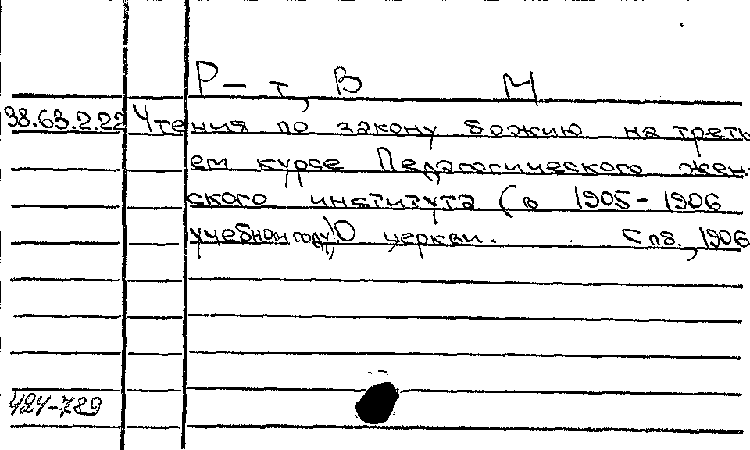 Р-т, В М
38.63.2.22 Чтения по закону божию на треть
ем курсе Педагогического жен-
ского института (в 1905-1906
учебном году) О церкви. Спб., 1906
424-789